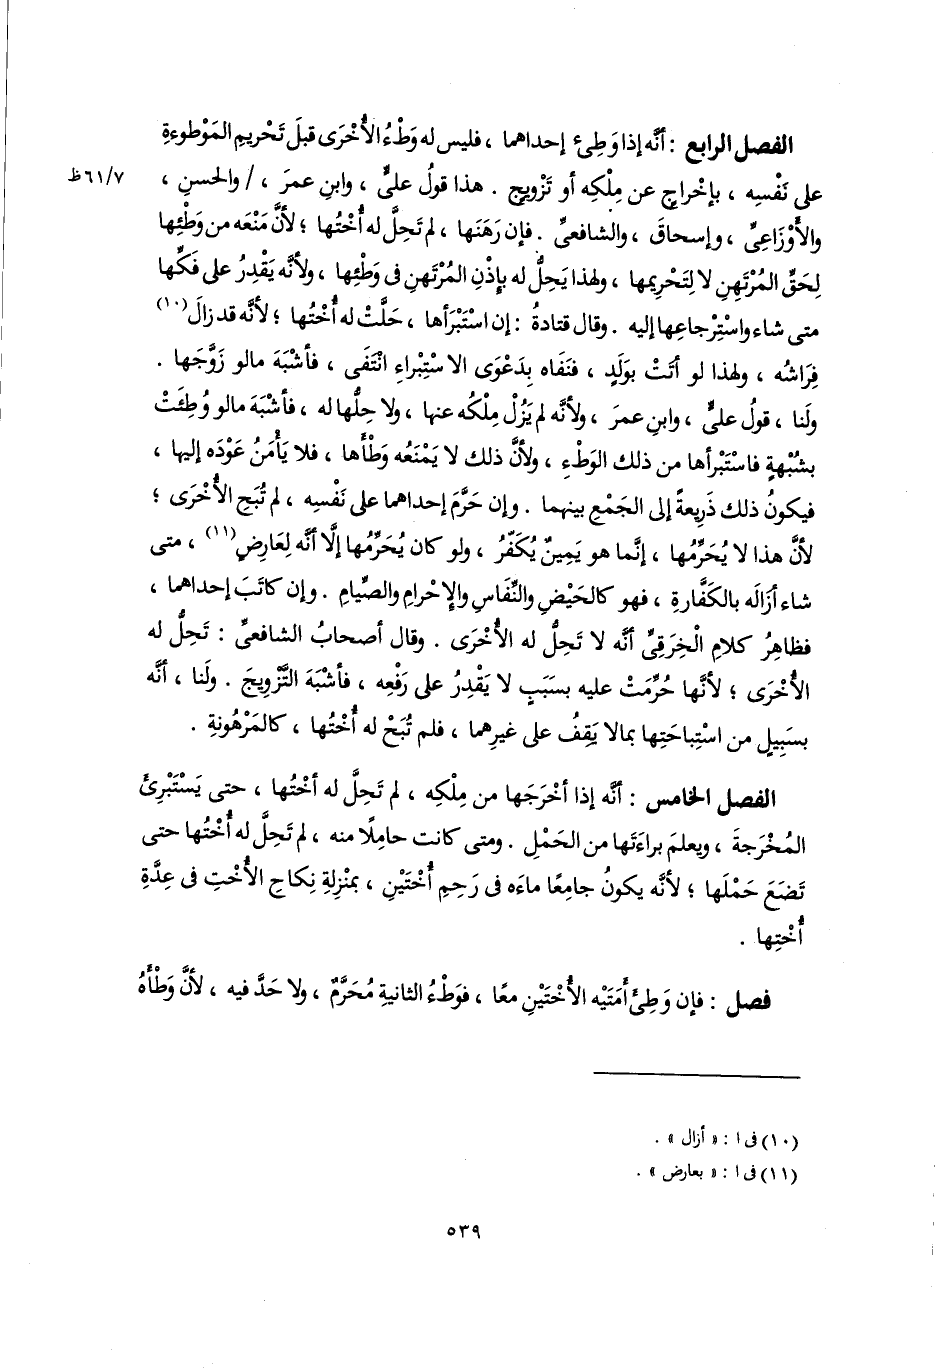 الفصل الرابع : أنَّه إذا وَطِئ إحداهما ، فليس له وَطْءُ الأُخْرَى قبلَ تَحْريمِ المَوْطوءةِ
على نَفْسِه ، بإخْراجٍ عن مِلْكِه أو تَزْويجٍ . هذا قولُ عليٍّ ، وابنِ عمرَ ، / والحسنِ ،
٦١/٧ظ
والأَوْزَاعِىِّ ، وإسحاقَ ، والشافعىِّ . فإن رَهَنَها ، لم تَحِلَّ له أُخْتُها ؛ لأنَّ مَنْعَه من وَطْئِها
لِحَقِّ المُرْتَهِنِ لا لِتَحْرِيمها ، ولهذا يَحِلُّ له بإِذْنِ المُرْتَهنِ فى وَطْئِها ، ولأنَّه يَقْدِرُ على فَكِّها
متى شاء واسْتِرْجاعِها إليه . وقال قتادةُ : إن اسْتَبْرَأها ، حَلَّتْ له أُخْتُها ؛ لأنَّه قد زالَ(١٠)
فِرَاشُه ، ولهذا لو أتَتْ بوَلَدٍ ، فنَفَاه بِدَعْوَى الاسْتِبْراءِ انْتَفَى ، فأشْبَهَ مالو زَوَّجَها .
ولَنا ، قولُ عليٍّ ، وابنِ عمرَ ، ولأنَّه لم يَزُلْ مِلْكُه عنها ، ولا حِلُّها له ، فأشْبَهَ مالو وُطِئَتْ
بشُبْهةٍ فاسْتَبْرأها من ذلك الوَطْءِ ، ولأنَّ ذلك لا يَمْنَعُه وَطْأَها ، فلا يَأْمَنُ عَوْدَه إليها ،
فيكونُ ذلك ذَرِيعةً إلى الجَمْعِ بينهما . وإن حَرَّمَ إحداهما على نَفْسِه ، لم تُبَحِ الأُخْرَى ؛
لأنَّ هذا لا يُحَرِّمُها ، إنَّما هو يَمِينٌ يُكَفِّرُ ، ولو كان يُحَرِّمُها إلَّا أنَّه لِعَارِضٍ(١١) ، متى
شاء أزَالَه بالكَفَّارةِ ، فهو كالحَيْضِ والنِّفَاسِ والإِحْرامِ والصِّيامِ . وإن كاتَبَ إحداهما ،
فظاهِرُ كلامِ الْخِرَقِىِّ أنَّه لا تَحِلُّ له الأُخْرَى . وقال أصحابُ الشافعىِّ : تَحِلُّ له
الأُخْرَى ؛ لأنَّها حُرِّمَتْ عليه بسَبَبٍ لا يَقْدِرُ على رَفْعِه ، فأشْبَهَ التَّزْوِيجَ . ولَنا ، أنَّه
بسَبِيلٍ من اسْتِباحَتِها بمالا يَقِفُ على غيرِهما ، فلم تُبَحْ له أُخْتُها ، كالمَرْهُونةِ .
الفصل الخامس : أنَّه إذا أخْرَجَها من مِلْكِه ، لم تَحِلَّ له أخْتُها ، حتى يَسْتَبْرِئَ
المُخْرَجةَ ، ويعلمَ براءَتَها من الحَمْلِ . ومتى كانت حامِلًا منه ، لم تَحِلَّ له أُخْتُها حتى
تَضَعَ حَمْلَها ؛ لأنَّه يكونُ جامِعًا ماءَه فى رَحِمِ أُخْتَيْنِ ، بمَنْزِلةِ نِكاحِ الأُخْتِ فى عِدَّةِ
أُخْتِها .
فصل : فإن وَطِئَ أَمَتَيْه الأُخْتَيْنِ معًا ، فوَطْءُ الثانيةِ مُحَرَّمٌ ، ولا حَدَّ فيه ، لأنَّ وَطْأَهُ
(١٠) فى ا : « أزال » .
(١١) فى ا : « بعارض » .
٥٣٩